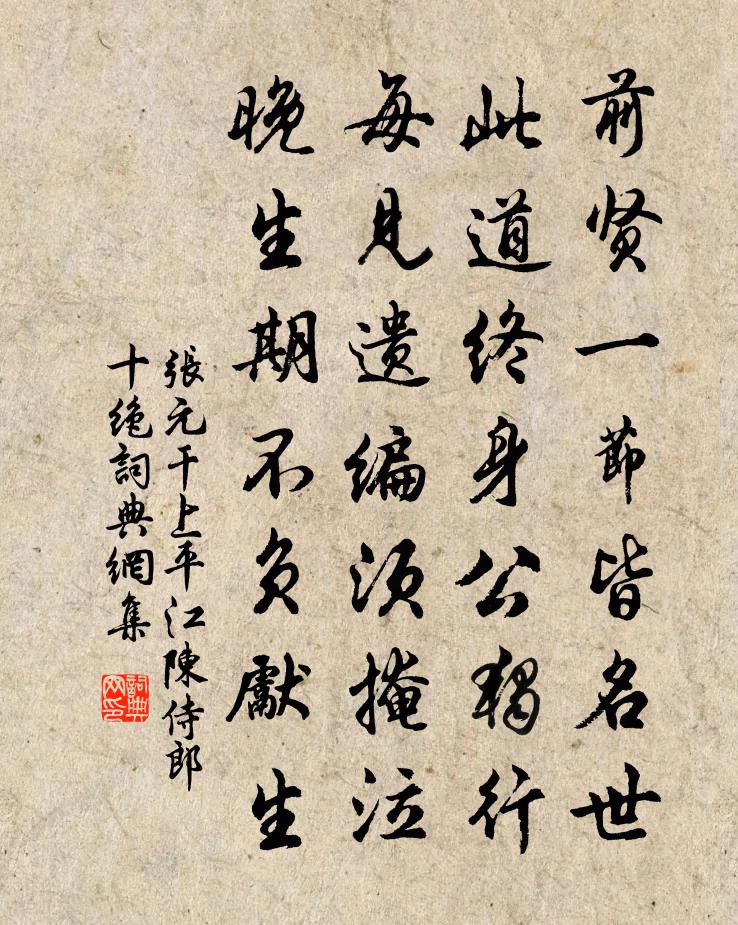 前贤一节皆名世
此道终身公独行
每见遗编须掩泣
晚生期不负献生
張元干上平江陳侍郎
十绝詞典網集
詞典
网印